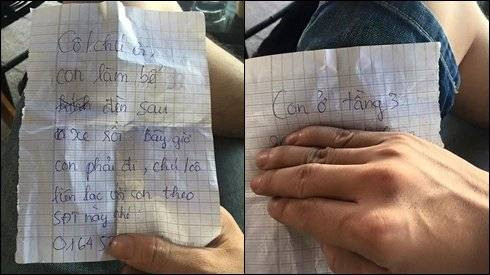 Cô/chú ơi,
con làm bể
đèn sau
xe rồi bây giờ
con phải đi, chú/cô
liên lạc với con theo
SĐT này nhé
0164
Con ở tầng 3